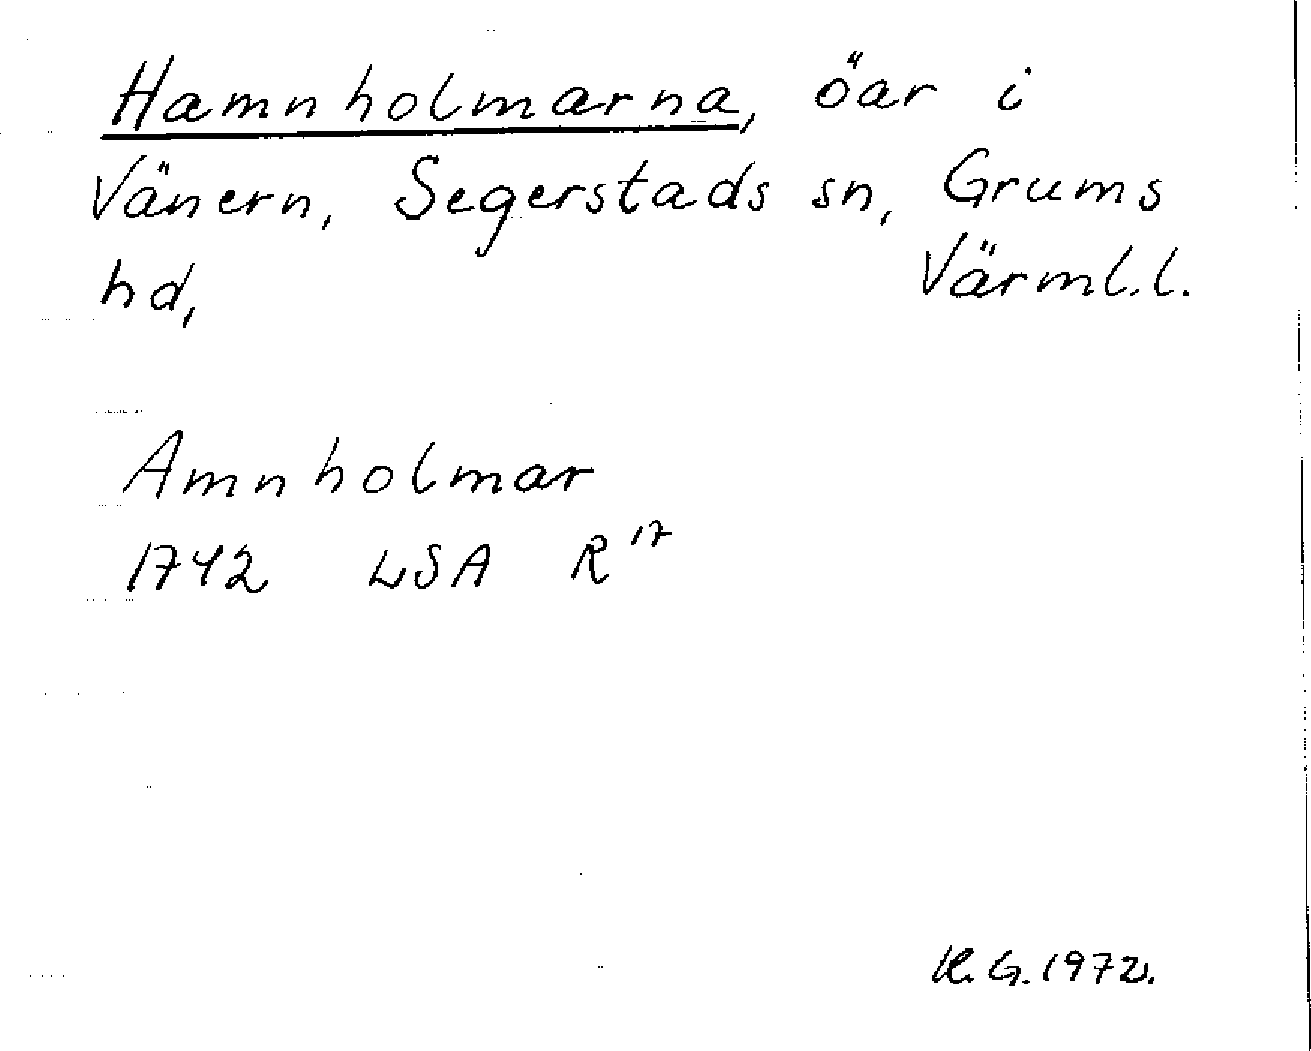 Hamnholmarna, öar i
Vänern, Segerstads sn, Grums
hd, Värml.l.
Amnholmar
1742 LSA R¹⁷
K.G.1972.